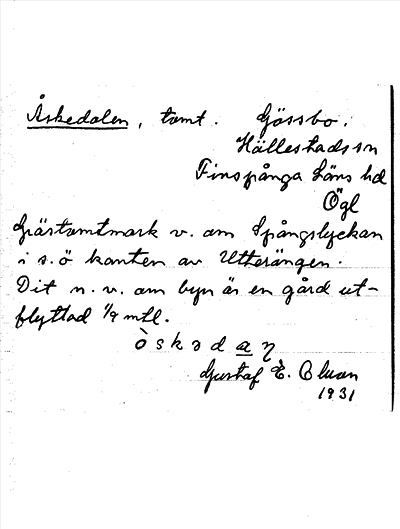 Åskedalen, tomt. Gössbo.
Hällestads sn
Finspånga läns hd
Ögl
Grästomtmark v. om Spångslyckan
i s.ö kanten av Utterängen.
Dit n. v. om byn är en gård ut-
flyttad 1/4 mtl.
Gustaf E.
1931